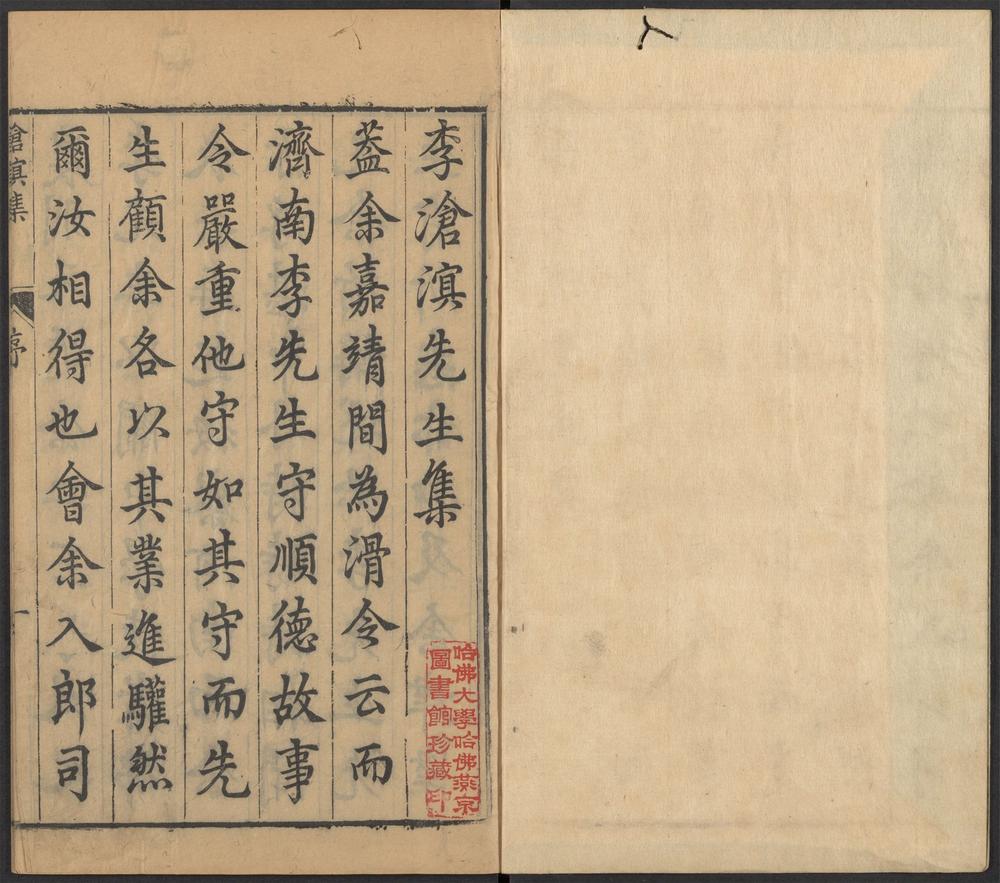 李滄溟先生集
蓋余嘉靖間為滑令云而
濟南李先生守順德故事
令嚴重他守如其守而先
生顧余各以其業進驩然
爾汝相得也會余入郎司
滄溟集
序
一
哈佛大學哈佛燕京
圖書館珍藏印